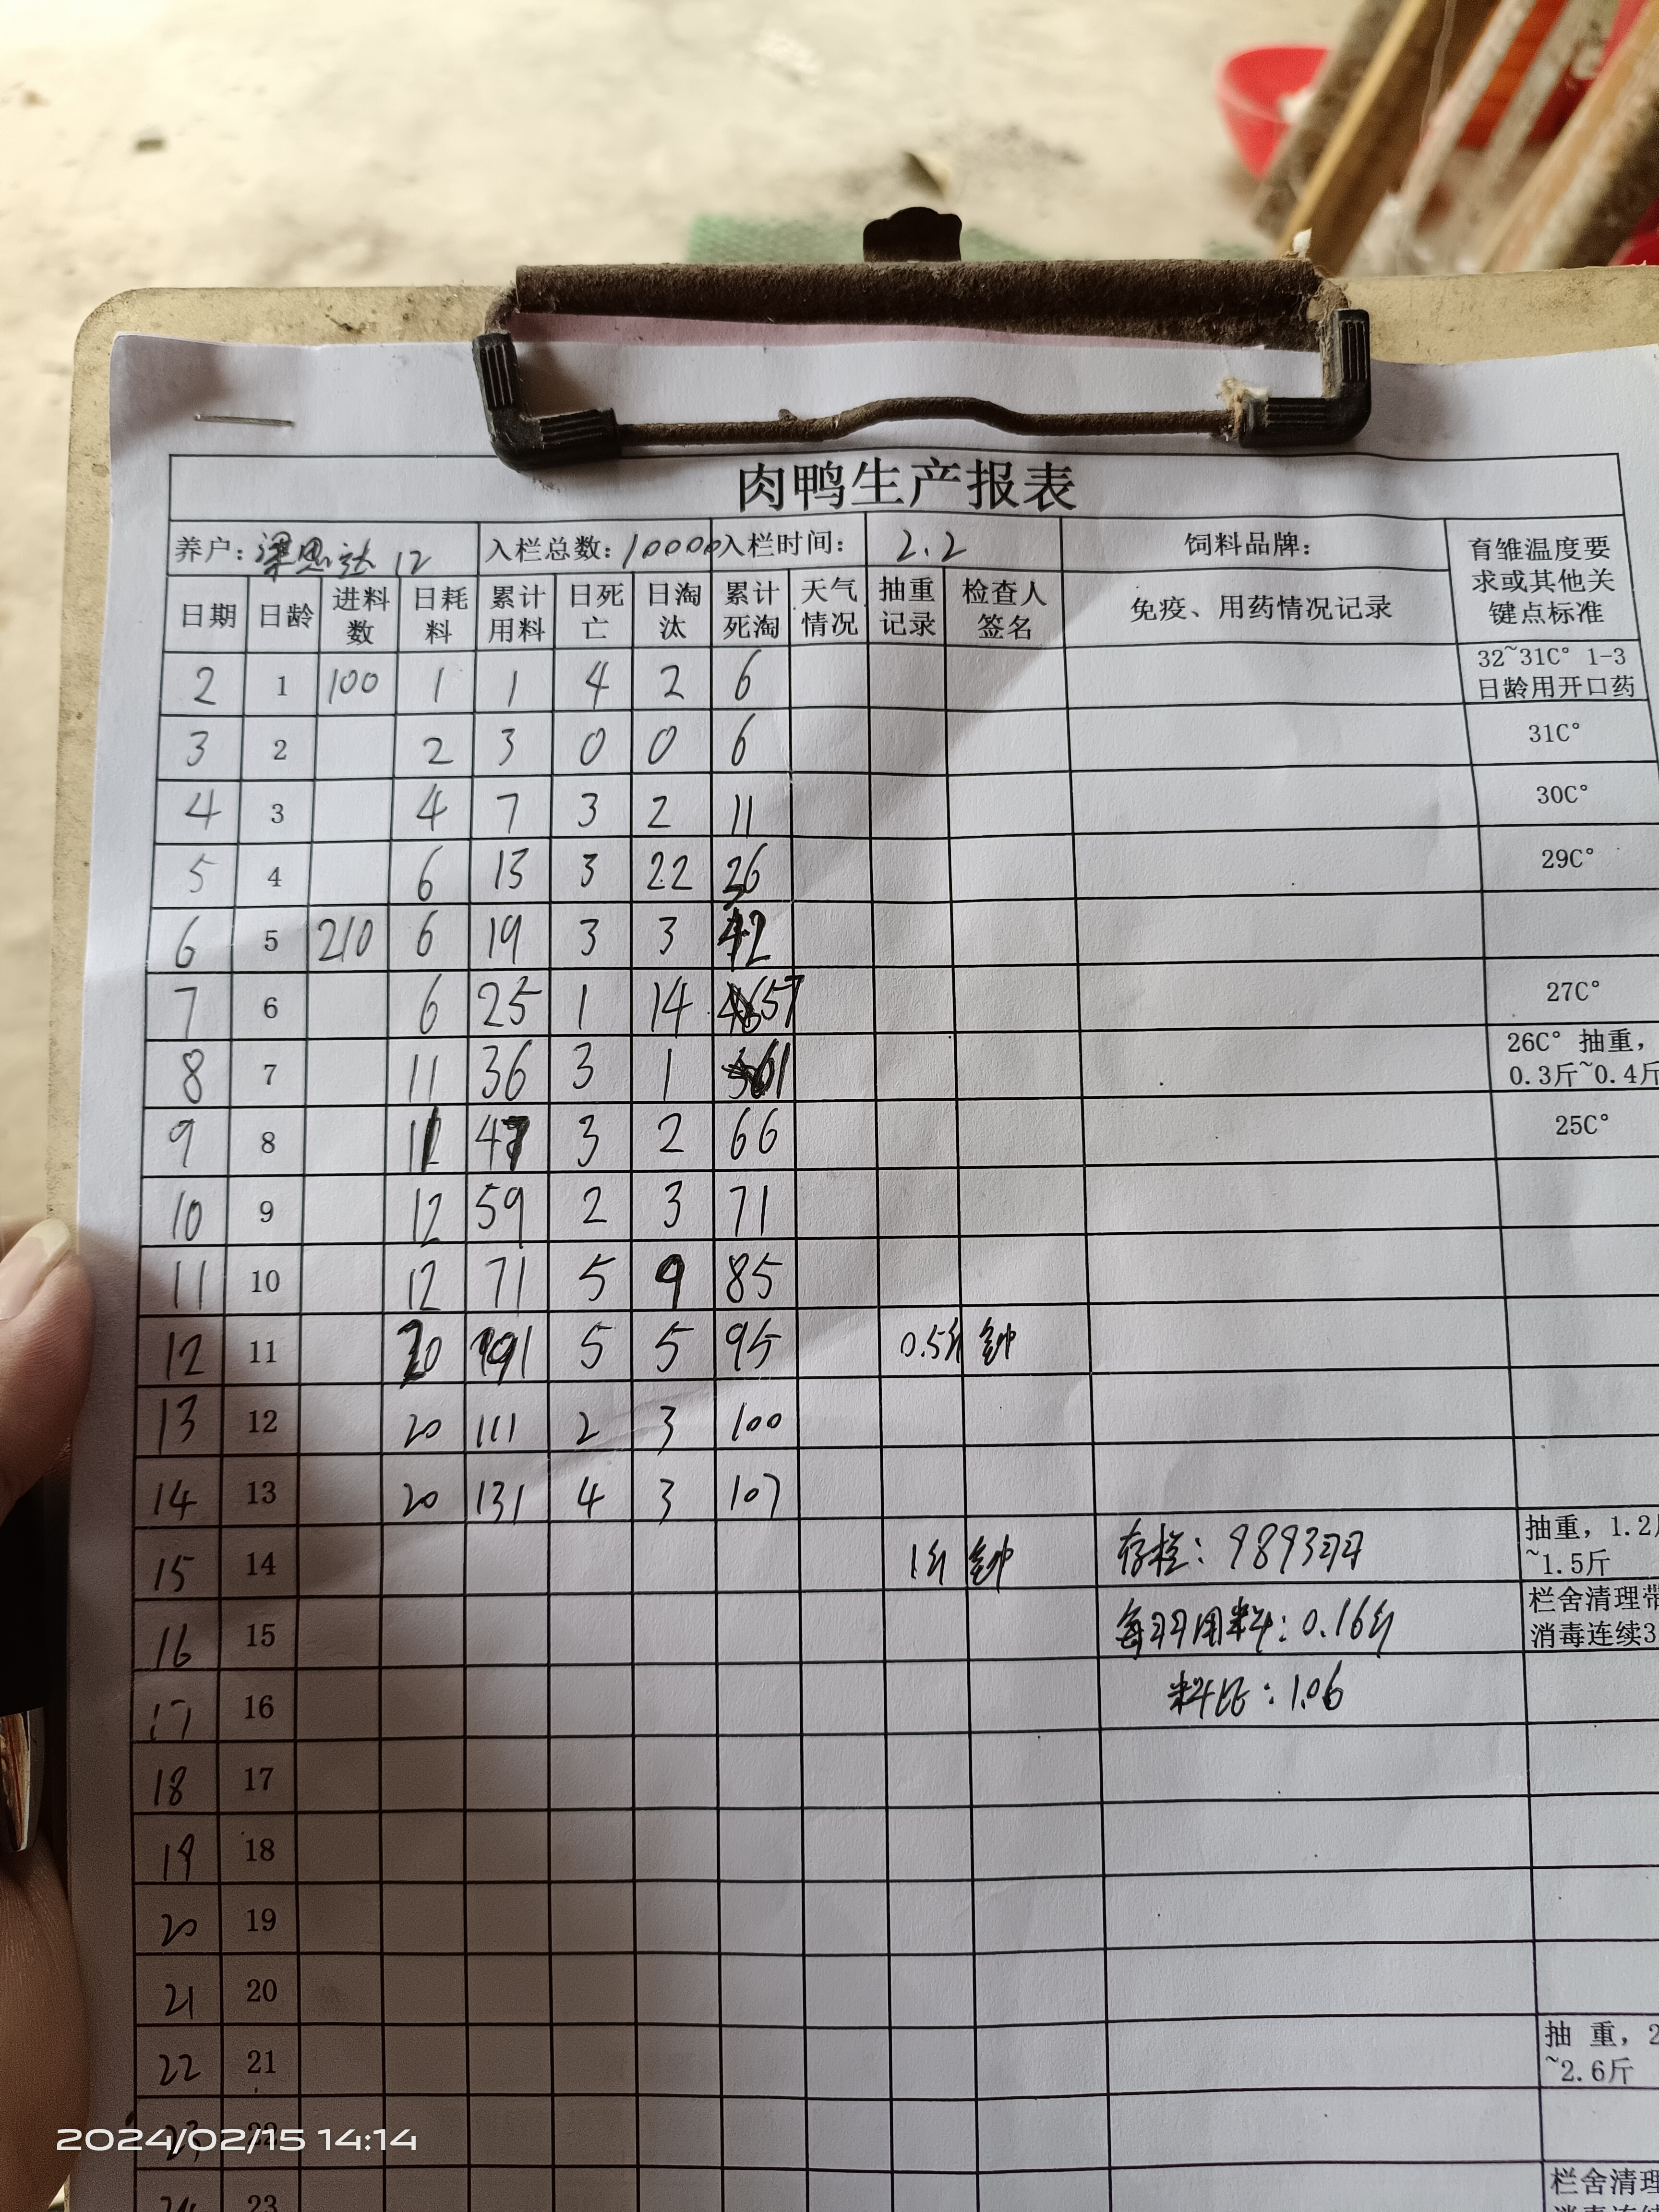 肉鸭生产报表
养户: 梁思达 12 入栏总数: 10000 入栏时间: 2.2 饲料品牌: 育雏温度要求或其他关键点标准
日期 日龄 进料数 日耗料 累计用料 日死亡 日淘汰 累计死淘 天气情况 抽重记录 检查人签名 免疫、用药情况记录
2 1 100 1 1 4 2 6 32~31C° 1-3日龄用开口药
3 2 2 3 0 0 6 31C°
4 3 4 7 3 2 11 30C°
5 4 6 13 3 22 36 29C°
6 5 210 6 19 3 3 42
7 6 6 25 1 14 57 27C°
8 7 11 36 3 1 61 26C° 抽重, 0.3斤~0.4斤
9 8 11 47 3 2 66 25C°
10 9 12 59 2 3 71
11 10 12 71 5 9 85
12 11 20 91 5 5 95 0.5斤 钟
13 12 20 111 2 3 100
14 13 20 131 4 3 107
15 14 1斤 钟 存栏: 9893羽 抽重, 1.2斤~1.5斤
16 15 每羽用料: 0.16斤 栏舍清理带 消毒连续3
17 16 料比: 1.06
18 17
19 18
20 19
21 20
22 21 抽 重, 2 ~2.6斤
23 22
24 23 栏舍清理
2024/02/15 14:14